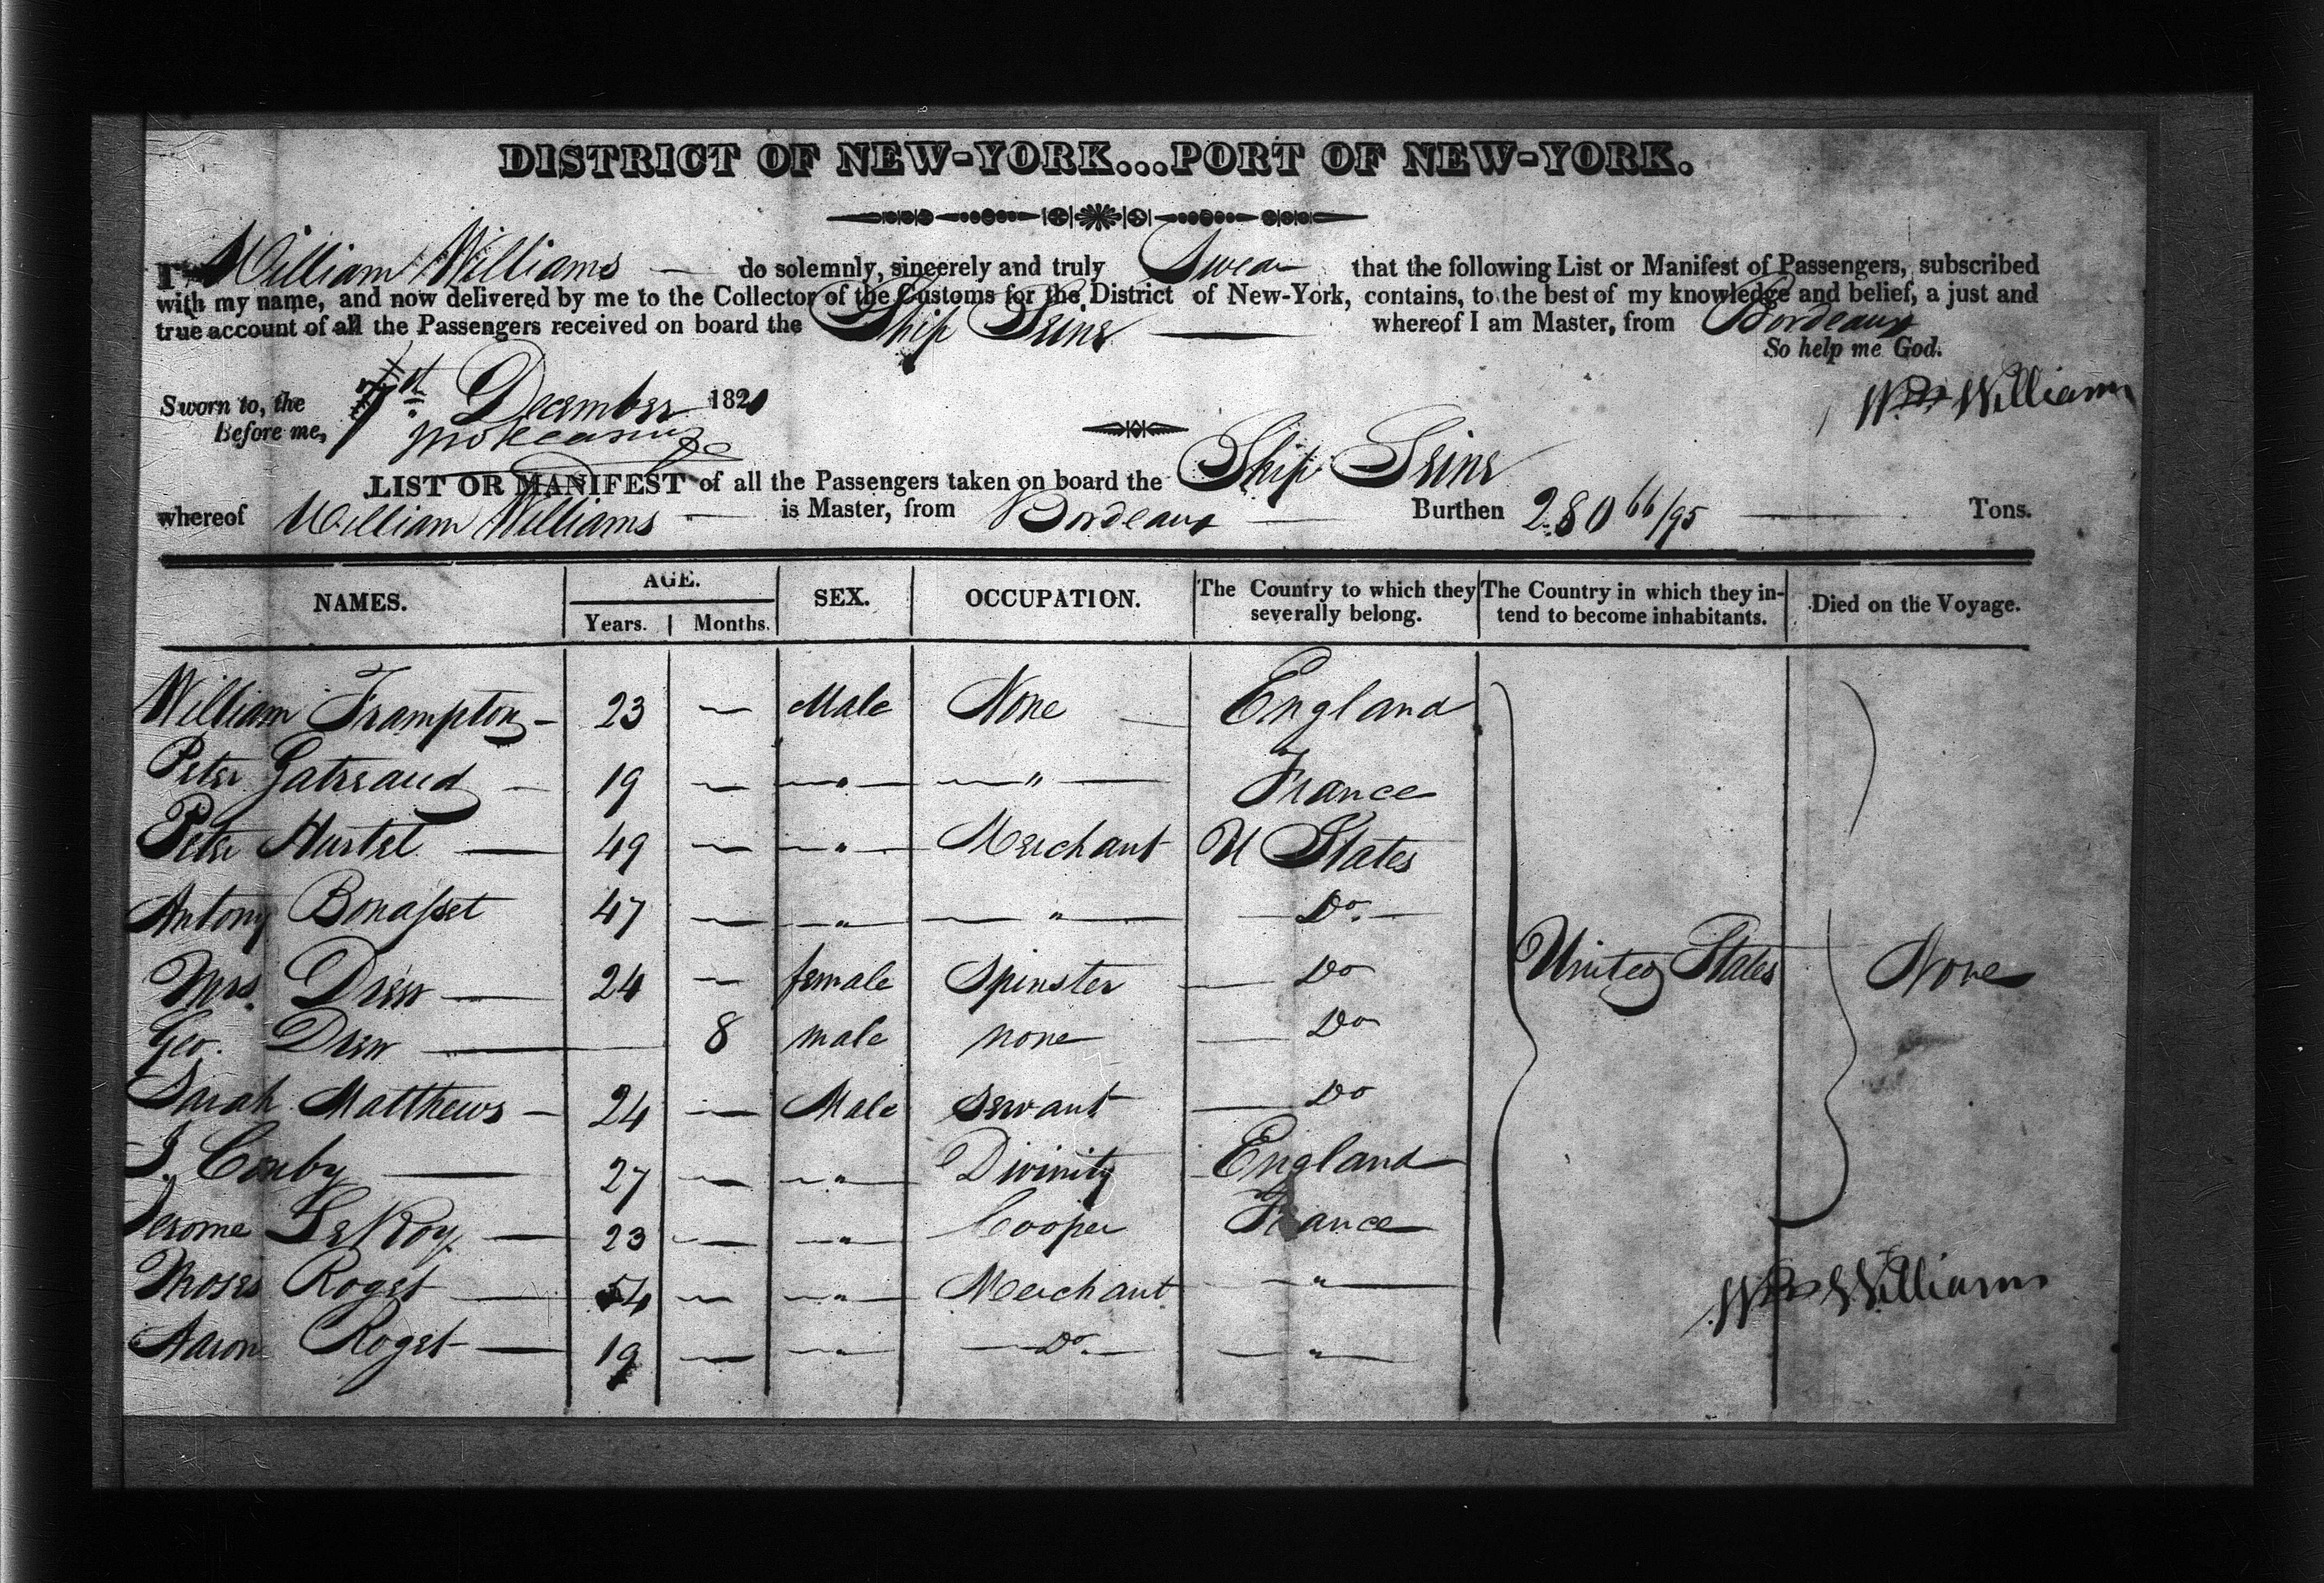 DISTRICT OF NEW-YORK...PORT OF NEW-YORK.
I William Williams — do solemnly, sincerely and truly Swear that the following List or Manifest of Passengers, subscribed
with my name, and now delivered by me to the Collector of the Customs for the District of New-York, contains, to the best of my knowledge and belief, a just and
true account of all the Passengers received on board the Ship Seine — whereof I am Master, from Bordeaux
So help me God.
Sworn to, the December 182
Before me,
Wm Williams
LIST OR MANIFEST of all the Passengers taken on board the Ship Seine
whereof William Williams — is Master, from Bordeaux — Burthen 280 66/95 — Tons.
NAMES. AGE. Years. Months. SEX. OCCUPATION. The Country to which they severally belong. The Country in which they intend to become inhabitants. Died on the Voyage.
William Frampton — 23 — Male None — England
Peter Gatreaud — 19 — " — " — France
Peter Hurtel — 49 — " — Merchant U States
Antony Bonasset 47 — " — " — Do —
Mrs. Drew — 24 — female Spinster — Do
United States None
Geo. Drew — 8 male none — Do
Sarah Matthews — 24 — Male Servant — Do
J. Conby — 27 — " — Divinity England
Jerome LeRoy — 23 — " — Cooper France
Moses Roget — 54 — " — Merchant — " —
Wm Williams
Aaron Roget — 19 — " — Do. — " —